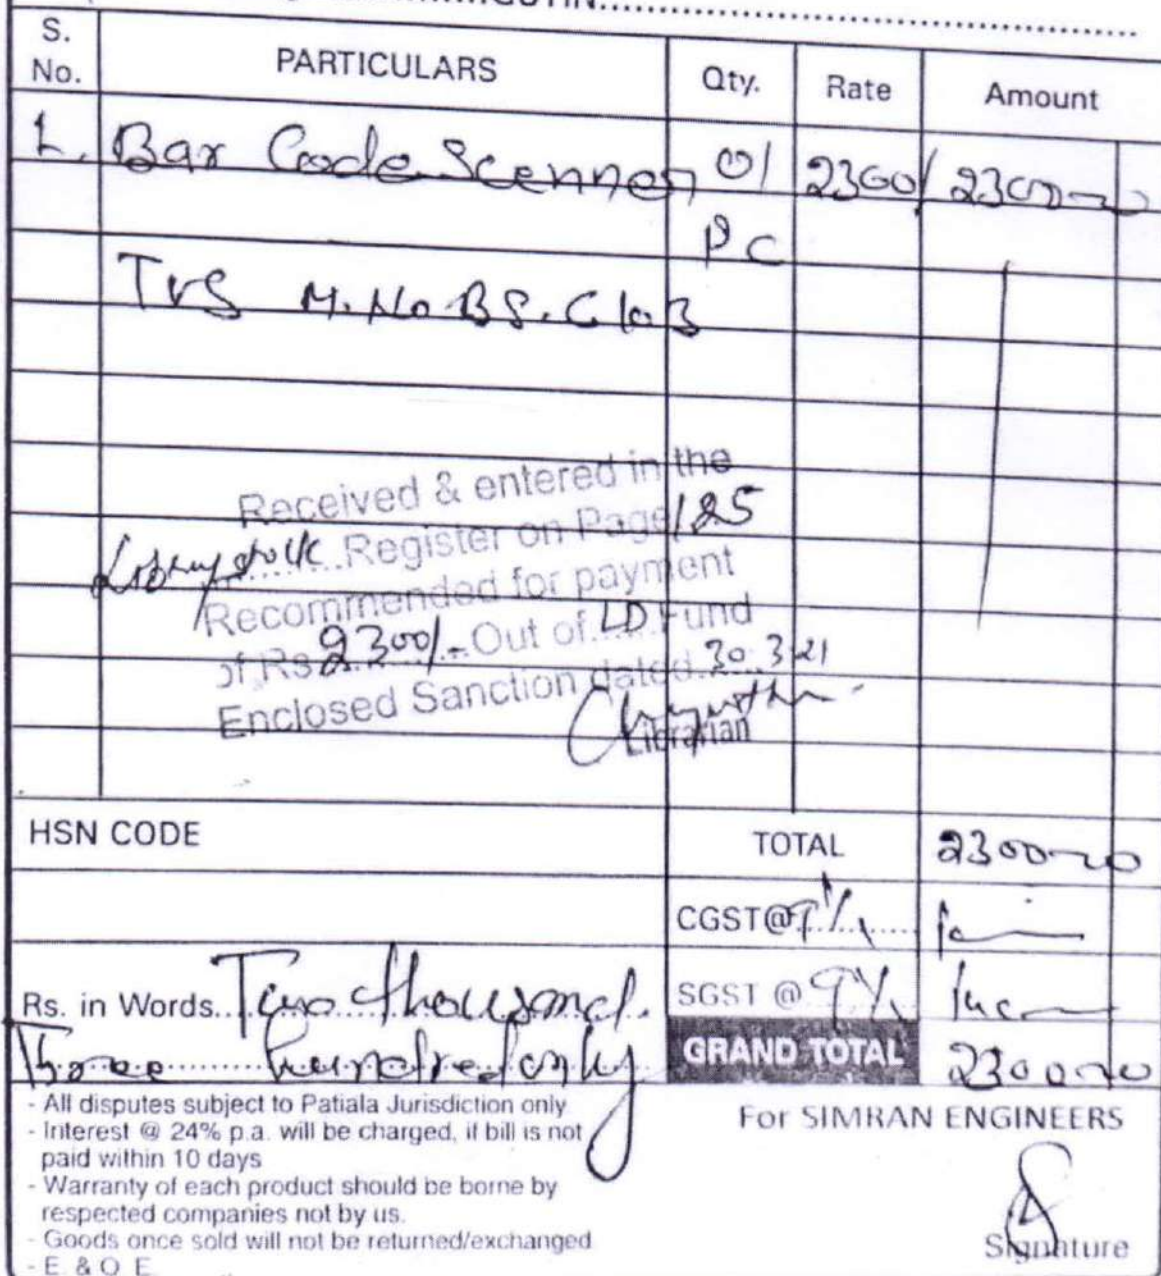 GSTIN
S. No. PARTICULARS Qty. Rate Amount
1. Bar Code Scenner 01 2300/ 2300-00
PC
TVS M.No BS.C103
Received & entered in the
Library stock Register on Page 125
Recommended for payment
of Rs 2300/- Out of LD Fund
Enclosed Sanction dated 30.3.21
Librarian
HSN CODE TOTAL 2300-00
CGST@ 9%
Rs. in Words Two thousand SGST @ 9%
Three hundred only GRAND TOTAL 2300-00
- All disputes subject to Patiala Jurisdiction only
- Interest @ 24% p.a. will be charged, if bill is not
paid within 10 days
- Warranty of each product should be borne by
respected companies not by us.
- Goods once sold will not be returned/exchanged
- E. & O. E.
For SIMRAN ENGINEERS
Signature